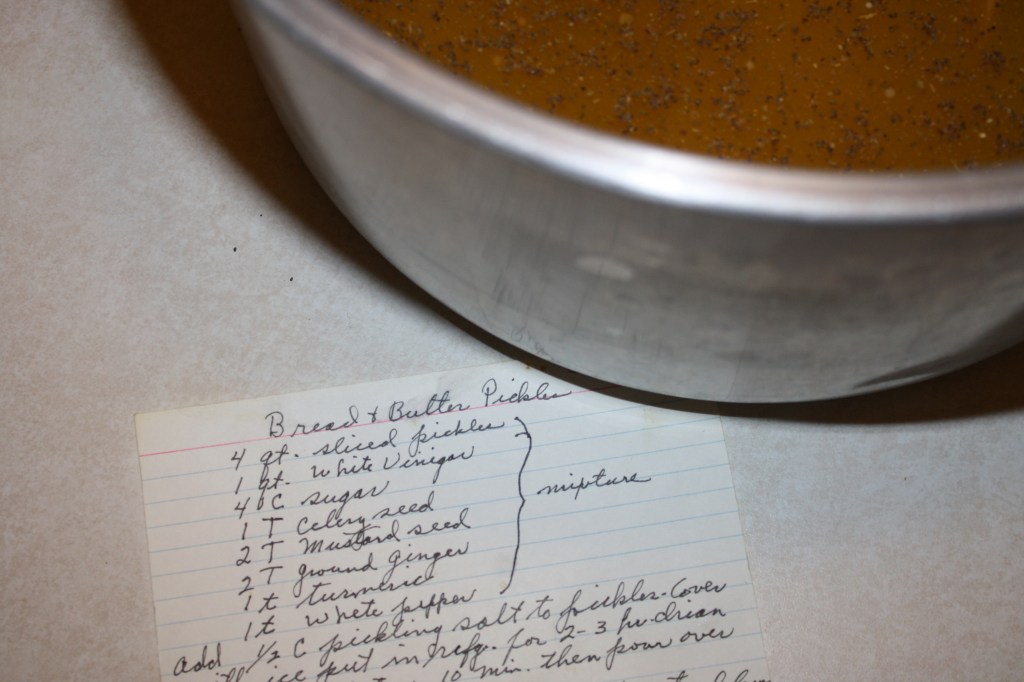 Bread & Butter Pickles
4 qt. sliced pickles
1 qt. white Vinigar
4 C sugar
1 T Celery seed
2 T Mustard seed
2 T ground ginger
1 t turmeric
1 t white pepper
mixture
add 1/2 C pickling salt to pickles. Cover
ice put in refg. for 2-3 hr. drian
10 min. then pour over